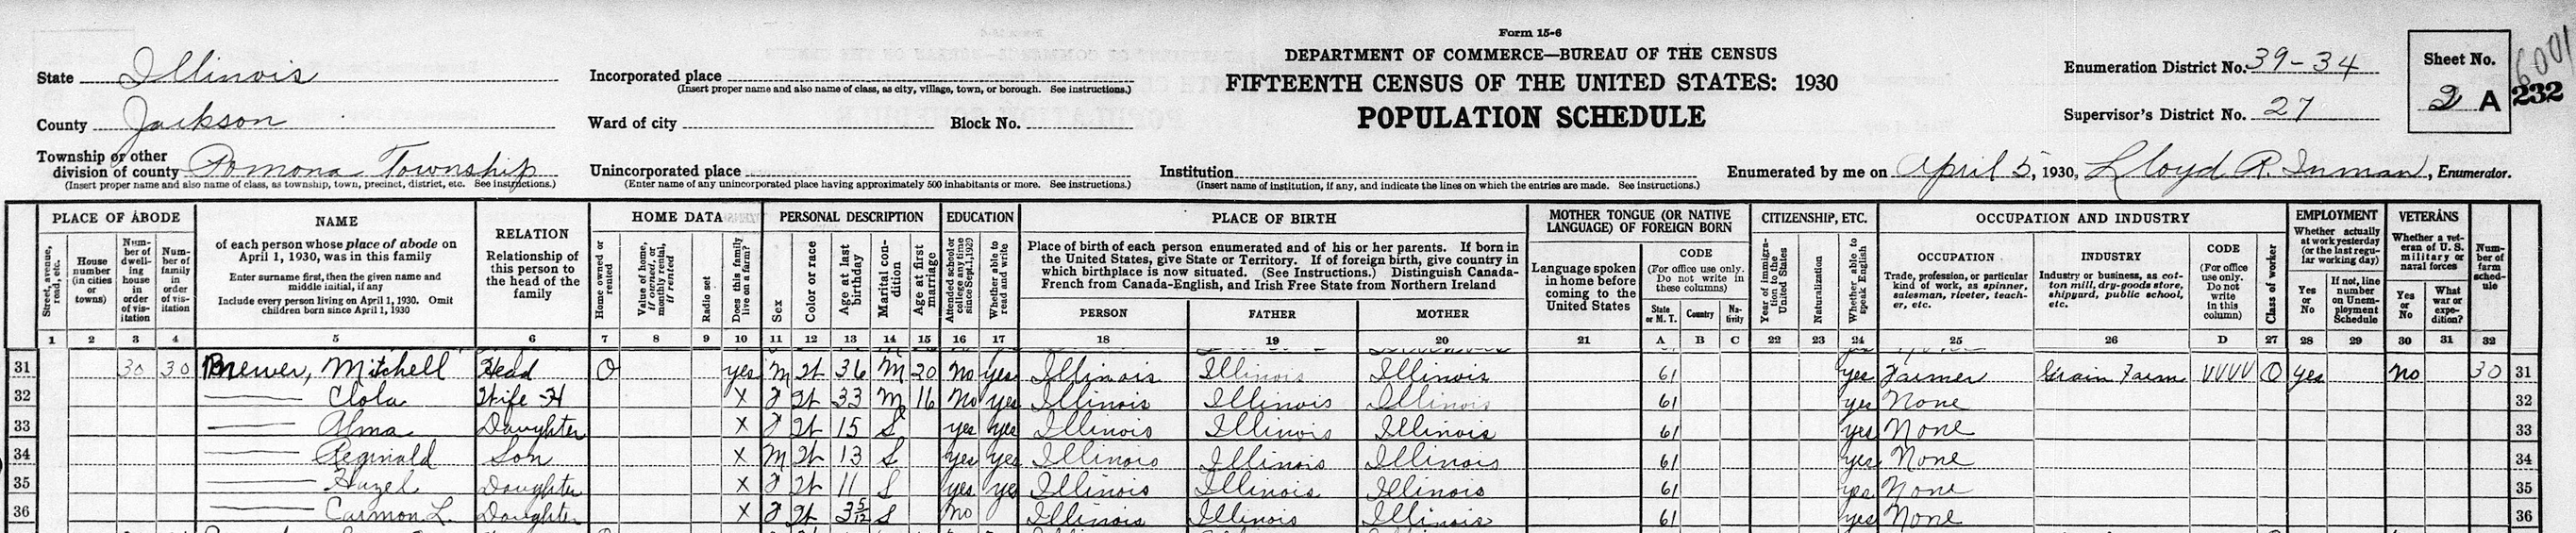 Form 15-6
DEPARTMENT OF COMMERCE—BUREAU OF THE CENSUS
FIFTEENTH CENSUS OF THE UNITED STATES: 1930
POPULATION SCHEDULE
State Illinois
County Jackson
Township or other division of county Pomona Township
(Insert proper name and also name of class, as township, town, precinct, district, etc. See instructions.)
Incorporated place
(Insert proper name and also name of class, as city, village, town, or borough. See instructions.)
Ward of city Block No.
Unincorporated place
(Enter name of any unincorporated place having approximately 500 inhabitants or more. See instructions.)
Institution
(Insert name of institution, if any, and indicate the lines on which the entries are made. See instructions.)
Enumeration District No. 39-34
Supervisor's District No. 27
Sheet No.
2 A
6001
232
Enumerated by me on April 5, 1930, Lloyd R. Inman, Enumerator.
PLACE OF ABODE
Street, avenue, road, etc.
House number (in cities or towns)
Number of dwelling house in order of visitation
Number of family in order of visitation
NAME
of each person whose place of abode on April 1, 1930, was in this family
Enter surname first, then the given name and middle initial, if any
Include every person living on April 1, 1930. Omit children born since April 1, 1930
RELATION
Relationship of this person to the head of the family
HOME DATA
Home owned or rented
Value of home, if owned, or monthly rental, if rented
Radio set
Does this family live on a farm?
PERSONAL DESCRIPTION
Sex
Color or race
Age at last birthday
Marital condition
Age at first marriage
EDUCATION
Attended school or college any time since Sept. 1, 1929
Whether able to read and write
PLACE OF BIRTH
Place of birth of each person enumerated and of his or her parents. If born in the United States, give State or Territory. If of foreign birth, give country in which birthplace is now situated. (See Instructions.) Distinguish Canada-French from Canada-English, and Irish Free State from Northern Ireland
PERSON FATHER MOTHER
MOTHER TONGUE (OR NATIVE LANGUAGE) OF FOREIGN BORN
Language spoken in home before coming to the United States
CODE
(For office use only. Do not write in these columns)
State or M. T. Country Nativity
CITIZENSHIP, ETC.
Year of immigration to the United States
Naturalization
Whether able to speak English
OCCUPATION AND INDUSTRY
OCCUPATION
Trade, profession, or particular kind of work, as spinner, salesman, riveter, teacher, etc.
INDUSTRY
Industry or business, as cotton mill, dry-goods store, shipyard, public school, etc.
CODE
(For office use only. Do not write in this column)
Class of worker
EMPLOYMENT
Whether actually at work yesterday (or the last regular working day)
Yes or No
If not, line number on Unemployment Schedule
VETERANS
Whether a veteran of U. S. military or naval forces
Yes or No
What war or expedition?
Number of farm schedule
1 2 3 4 5 6 7 8 9 10 11 12 13 14 15 16 17 18 19 20 21 A B C 22 23 24 25 26 D 27 28 29 30 31 32
31 30 30 Brewer, Mitchell Head O yes M W 36 M 20 No yes Illinois Illinois Illinois 61 yes Farmer Grain Farm VVVV O yes no 30 31
32 —— Clola Wife-H X F W 33 M 16 No yes Illinois Illinois Illinois 61 yes None 32
33 —— Alma Daughter X F W 15 S yes yes Illinois Illinois Illinois 61 yes None 33
34 —— Reginald Son X M W 13 S yes yes Illinois Illinois Illinois 61 yes None 34
35 —— Hazel Daughter X F W 11 S yes yes Illinois Illinois Illinois 61 yes None 35
36 —— Carmon L. Daughter X F W 3 5/12 S no Illinois Illinois Illinois 61 yes None 36